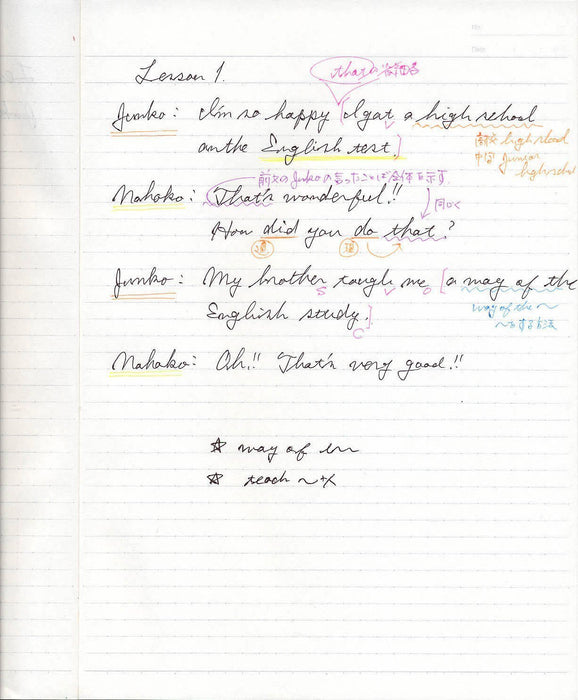 No.
Date
Lesson 1.
thatの省略
Junko: I'm so happy [I got a high school
on the English test.]
高校 high school
中学 junior
high school
前文のJunkoの言ったことば全体を示す
Nahoko: That's wonderful!!
同じく
How did you do that?
過 現
Junko: My brother taugh me [a way of the
S V O
English study.]
C
way of the 〜
〜する方法
Nahoko: Oh!! That's very good!!
☆ way of
☆ teach